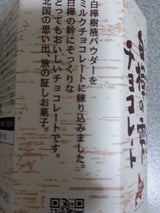 白樺の雫
チョコレート
白樺樹液パウダーを
ミルクチョコレートに練り込みました。
白樺の幹にそっくりな
とってもおいしいチョコレートです。
北国の思い出、旅の証しお菓子。